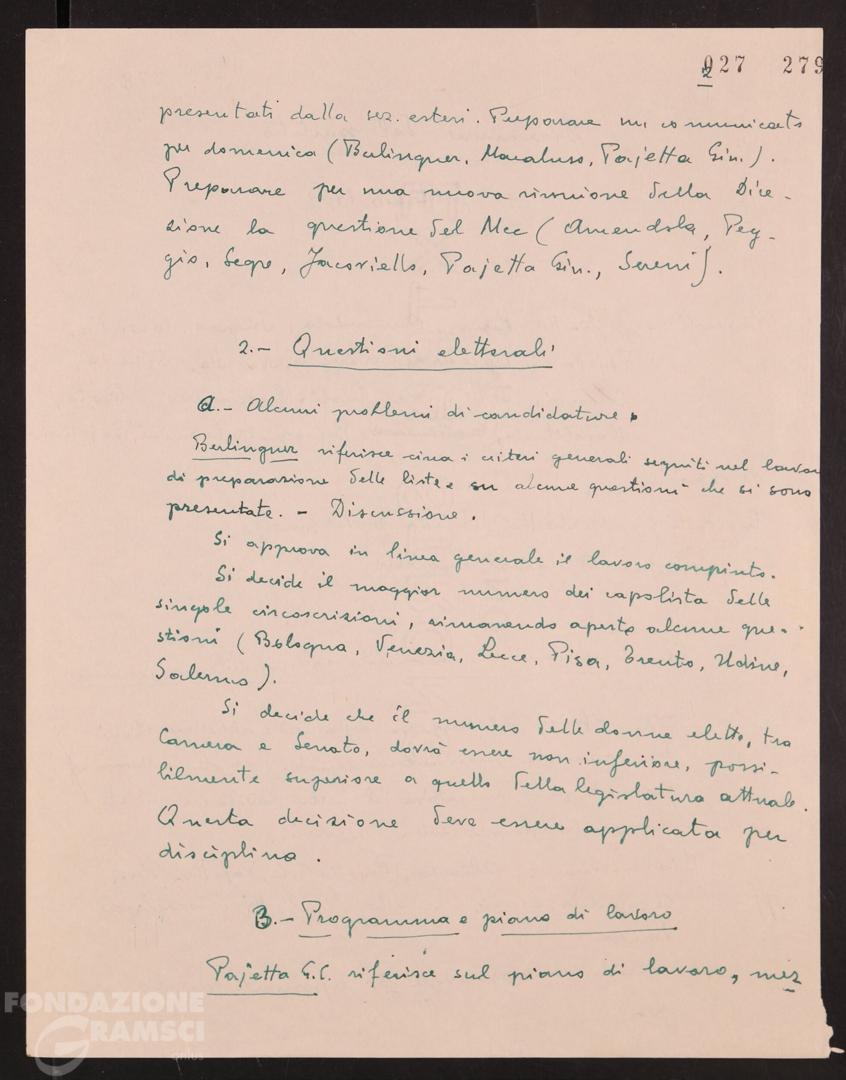 027 279
2
presentati dalla sez. esteri. Preparare un comunicato
per domenica (Berlinguer, Macaluso, Pajetta Giu.).
Preparare per una nuova riunione della Dire-
zione la questione del Mec (Amendola, Peg-
gio, Segre, Jacoviello, Pajetta Giu., Sereni).
2.- Questioni elettorali
A.- Alcuni problemi di candidature.
Berlinguer riferisce circa i criteri generali seguiti nel lavoro
di preparazione delle liste e su alcune questioni che si sono
presentate. - Discussione.
Si approva in linea generale il lavoro compiuto.
Si decide il maggior numero dei capolista delle
singole circoscrizioni, rimanendo aperte alcune que-
stioni (Bologna, Venezia, Lecce, Pisa, Trento, Udine,
Salerno).
Si decide che il numero delle donne elette, tra
Camera e Senato, dovrà essere non inferiore, possi-
bilmente superiore a quello della legislatura attuale.
Questa decisione deve essere applicata per
disciplina.
B.- Programma e piano di lavoro
Pajetta G.C. riferisce sul piano di lavoro, mez
FONDAZIONE
GRAMSCI
onlus